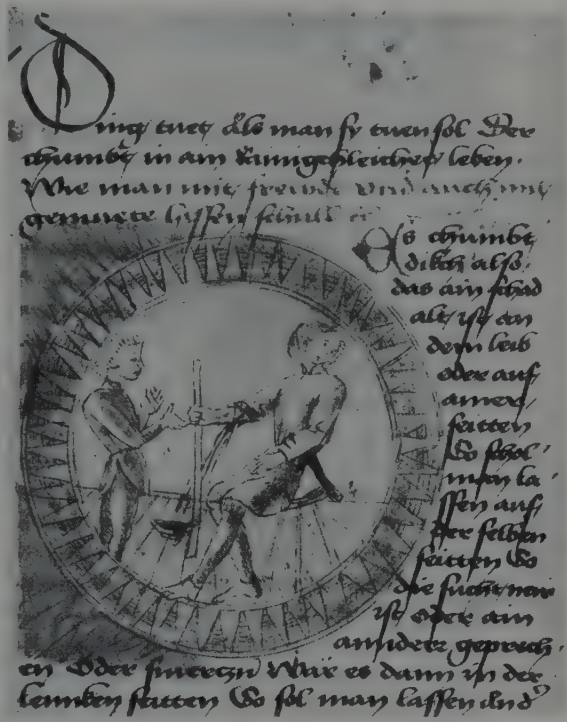 Ding tuet Als man sy tuen sol Der
chumbt in ain Rueigchleichen leben.
Wie man mit frewden vnd auch mit
gemuete lassen schull
Es chumbt
dikch also
das ain schad
alt ist an
dem leib
oder auf
ainer
seitten
So schol
man la
ssen auf
der selben
seitten So
die sucht new
ist Oder ain
annderr geprech
en Oder smerczn Wär es dann in der
lenncken seitten So sol man lassen And